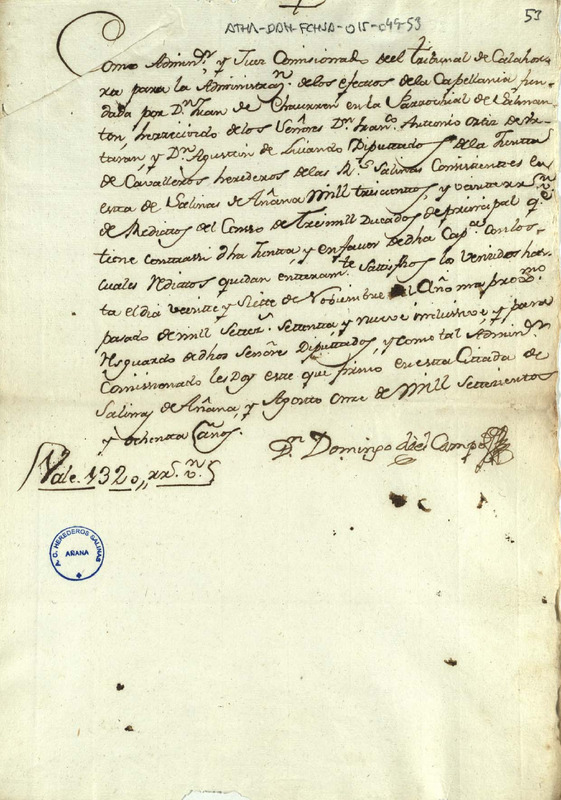 53
ATHA-DAH-FCHSA-015-049-53
Como Admin.or y Juez Comisionado del Tribunal de Calahor-
ra para la Administraz.n de los efectos de la Capellania fun-
dada por D.n Juan de Chavarri en la Parroquial de
ton, he recivido de los Señores D.n Fran.co Antonio Ortiz de
y D.n Agustin de Diputados de la Junta
de Cavalleros herederos de las R.s Salinas Consistentes en
esta de Salinas de Añana Mill trescientos, y veinte rr.s v.n
de Reditos del Censo de Tres mill Ducados de principal q.e
tiene contra si dha Junta, y en favor de dha Cap.a con los-
cuales Reditos quedan enteram.te Sattisfhos los vencidos has-
ta el dia veinte y Siete de Nobiembre del Año mas prox.mo
pasado de mill Setez.s Settenta y nueve inclussive, y para
Resguardo de dhos Señores Diputtados, y como tal Admin.or
Comissionado les Doy este que firmo en esta Citada de
Salinas de Añana y Agosto once de Mill Settecientos
y ochenta años.
D.n Domingo del Campo
Vale. 1320,, rr.s v.n
A. C. HEREDEROS SALINAS
AÑANA